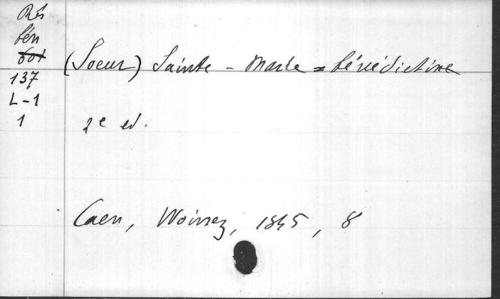 Rés
bén
601
137
L-1
1
(Soeur) Sainte - Marie = bénédictine
2e ed.
Caen, Woinez, 1845, 8